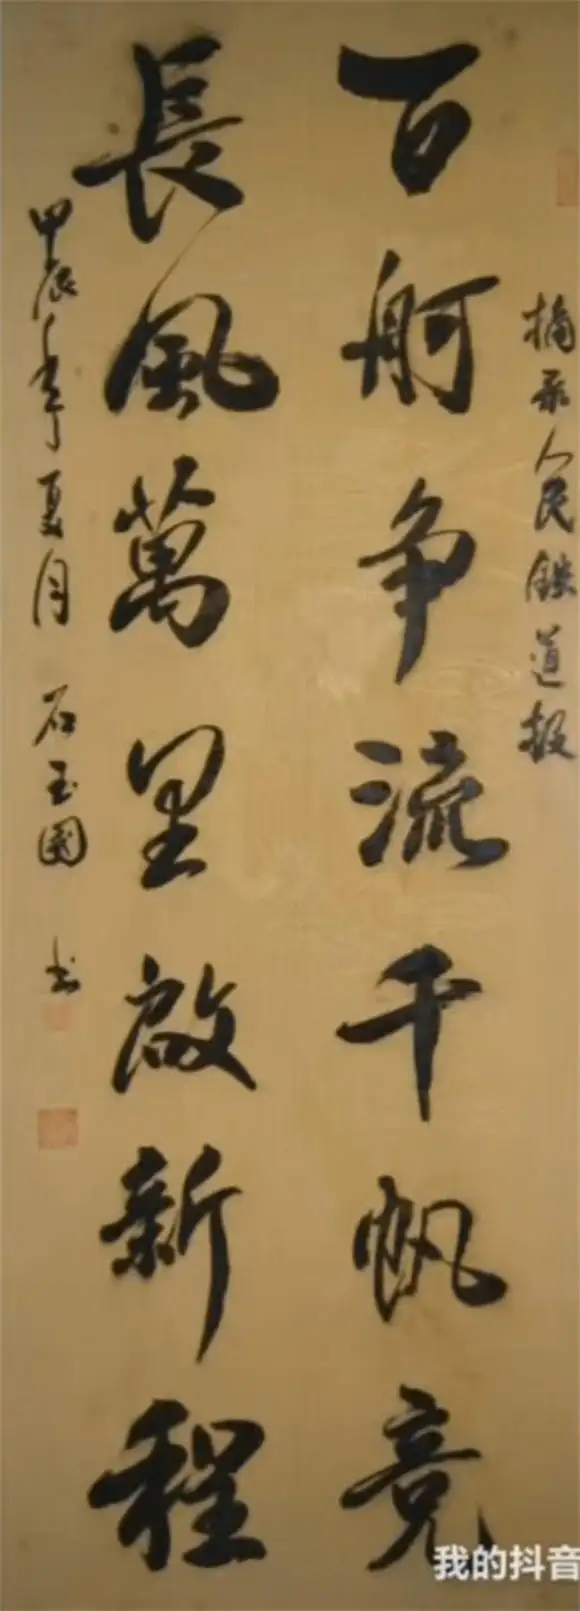 摘录人民鉄道报
百舸争流千帆竞
長風萬里啟新程
甲辰年夏月 石玉國 书
我的抖音